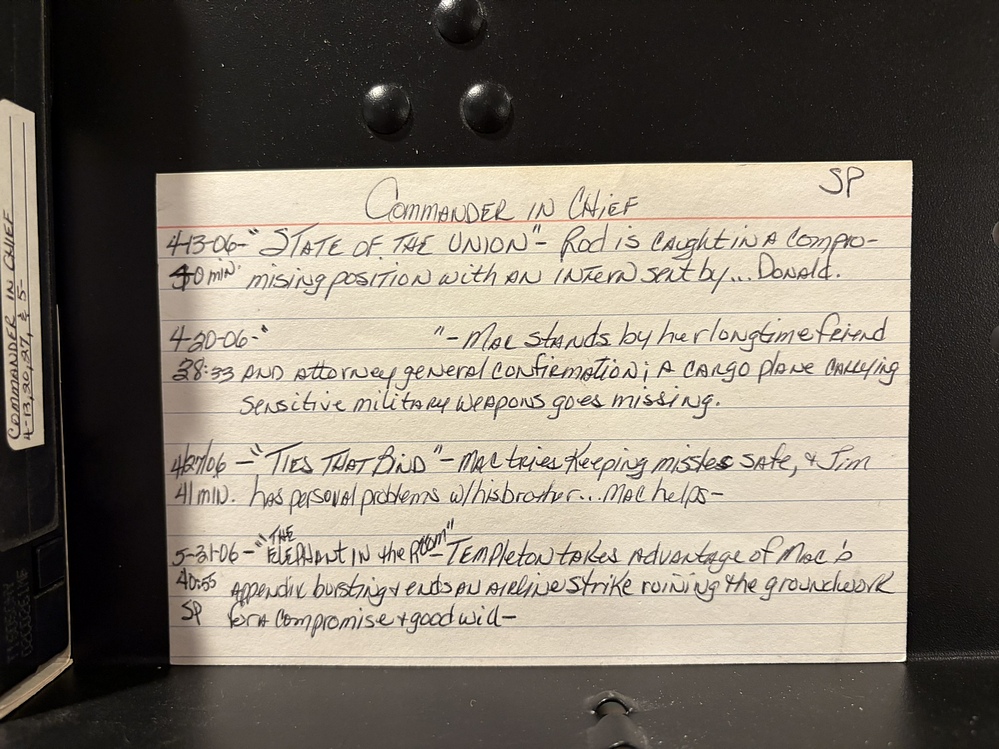 COMMANDER IN CHIEF
4-13, 20, 27, & 5-
SP
COMMANDER IN CHIEF
4-13-06-"STATE OF THE UNION"- Rod is caught in a compro-
40 min mising position with an intern sent by... Donald.
4-20-06-" "- Mac stands by her longtime friend
38:33 and attorney general confirmation; a cargo plane carrying
sensitive military weapons goes missing.
4/27/06-"TIES THAT BIND"- Mac tries keeping missles safe, & Jim
41 min. has personal problems w/ his brother... Mac helps-
5-31-06-"THE ELEPHANT IN the ROOM"- Templeton takes advantage of Mac's
40:55 appendix bursting & ends an airline strike ruining the groundwork
SP for a compromise & good will-